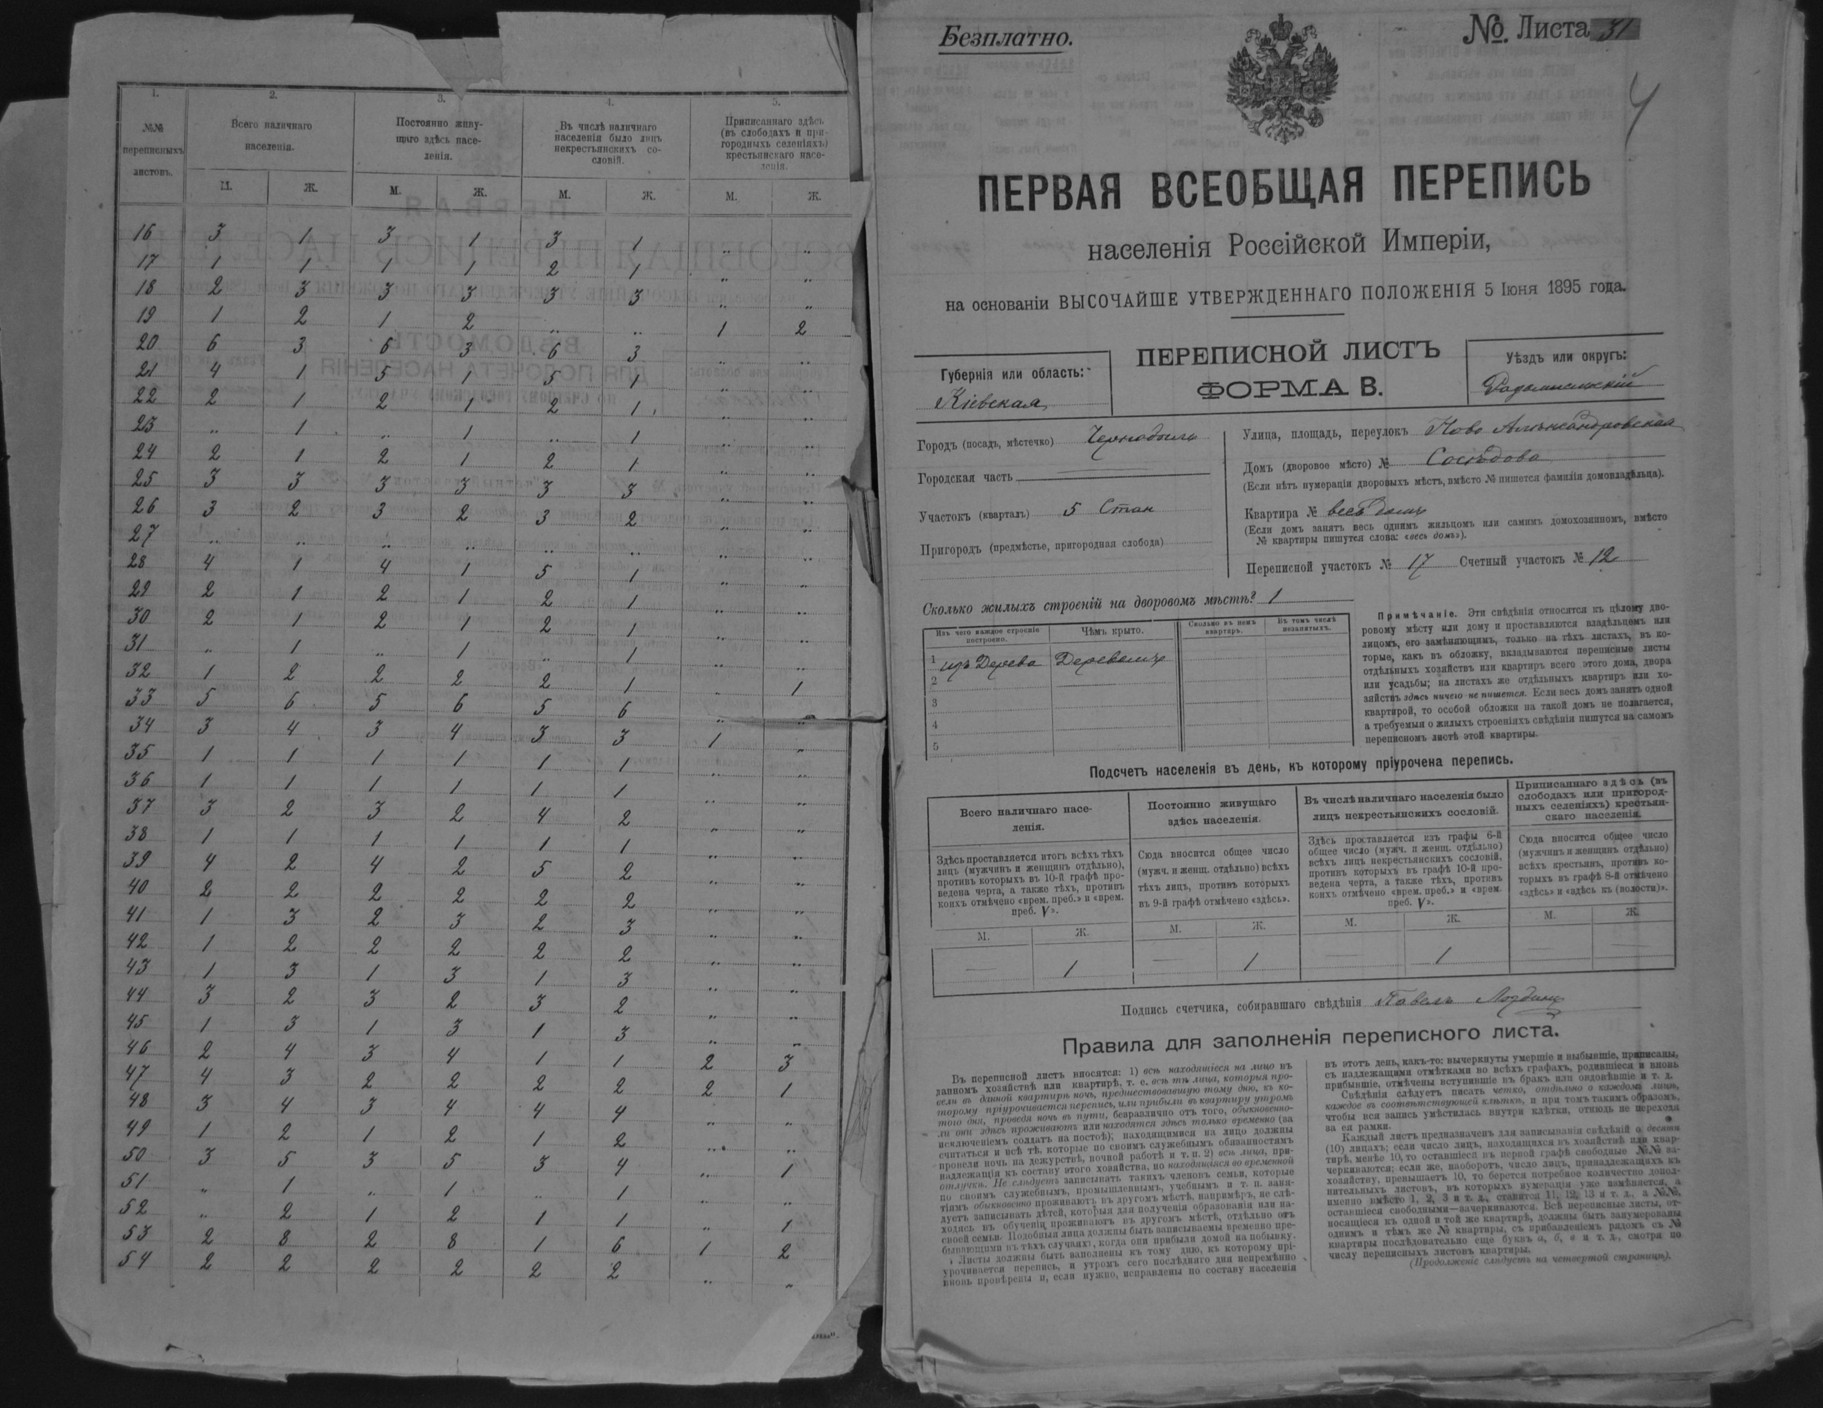 1. 2. 3. 4. 5.
№№ переписныхъ листовъ.
Всего наличнаго населенія.
Постоянно живущаго здѣсь населенія.
Въ числѣ наличнаго населенія было лицъ некрестьянскихъ сословій.
Приписаннаго здѣсь (въ слободахъ и пригородныхъ селеніяхъ) крестьянскаго населенія.
М. Ж. М. Ж. М. Ж. М. Ж.
16 3 1 3 1 3 1 .. ..
17 1 1 1 1 2 1 .. ..
18 2 3 3 3 3 3 .. ..
19 1 2 1 2 .. .. 1 2
20 6 3 6 3 6 3 .. ..
21 4 1 5 1 5 1 .. ..
22 2 1 2 1 2 1 .. ..
23 .. 1 .. 1 .. 1 .. ..
24 2 1 2 1 2 1 .. ..
25 3 3 3 3 3 3 .. ..
26 3 2 3 2 3 2 .. ..
27 .. .. .. .. .. .. .. ..
28 4 1 4 1 5 1 .. ..
29 2 1 2 1 2 1 .. ..
30 2 1 2 1 2 1 .. ..
31 .. 1 .. 1 .. 1 .. ..
32 1 2 2 2 2 1 .. 1
33 5 6 5 6 5 6 .. ..
34 3 4 3 4 3 3 1 ..
35 1 1 1 1 1 1 .. ..
36 1 1 1 1 1 1 .. ..
37 3 2 3 2 4 2 .. ..
38 1 1 1 1 1 1 .. ..
39 4 2 4 2 5 2 .. ..
40 2 2 2 2 2 2 .. ..
41 1 3 2 3 2 3 .. ..
42 1 2 2 2 2 2 .. ..
43 1 3 1 3 1 3 .. ..
44 3 2 3 2 3 2 .. ..
45 1 3 1 3 1 3 .. ..
46 2 4 3 4 1 1 2 3
47 4 3 2 2 2 2 2 1
48 3 4 3 4 4 4 .. ..
49 1 2 1 2 1 2 .. ..
50 3 5 3 5 3 4 .. 1
51 .. 1 .. 1 .. 1
52 .. 2 1 2 1 1 .. 1
53 2 8 2 8 1 6 1 2
54 2 2 2 2 2 2 .. ..
Безплатно.
№ Листа 31
4
ПЕРВАЯ ВСЕОБЩАЯ ПЕРЕПИСЬ
населенія Россійской Имперіи,
на основаніи ВЫСОЧАЙШЕ УТВЕРЖДЕННАГО ПОЛОЖЕНІЯ 5 Іюня 1895 года.
Губернія или область:
Кіевская
ПЕРЕПИСНОЙ ЛИСТЪ
ФОРМА В.
Уѣздъ или округъ:
Радомысльскій
Городъ (посадъ, мѣстечко) Чернобыль
Городская часть
Участокъ (кварталъ) 5 Стан
Пригородъ (предмѣстье, пригородная слобода)
Улица, площадь, переулокъ Ново Александровская
Домъ (дворовое мѣсто) № Сосѣдова
(Если нѣтъ нумераціи дворовыхъ мѣстъ, вмѣсто № пишется фамилія домовладѣльца).
Квартира № весь домъ
(Если домъ занятъ весь однимъ жильцомъ или самимъ домохозяиномъ, вмѣсто
№ квартиры пишутся слова: «весь домъ»).
Переписной участокъ № 17 Счетный участокъ № 12
Сколько жилыхъ строеній на дворовомъ мѣстѣ? 1
Изъ чего каждое строеніе построено.
Чѣмъ крыто.
Сколько въ немъ квартиръ.
Въ томъ числѣ незанятыхъ.
1 изъ Дерева Деревомъ
2
3
4
5
Примѣчаніе. Эти свѣдѣнія относятся къ цѣлому дво-
ровому мѣсту или дому и проставляются владѣльцемъ или
лицомъ, его замѣняющимъ, только на тѣхъ листахъ, въ ко-
торые, какъ въ обложку, вкладываются переписные листы
отдѣльныхъ хозяйствъ или квартиръ всего этого дома, двора
или усадьбы; на листахъ же отдѣльныхъ квартиръ или хо-
зяйствъ здѣсь ничего не пишется. Если весь домъ занятъ одной
квартирой, то особой обложки на такой домъ не полагается,
а требуемыя о жилыхъ строеніяхъ свѣдѣнія пишутся на самомъ
переписномъ листѣ этой квартиры.
Подсчетъ населенія въ день, къ которому пріурочена перепись.
Всего наличнаго насе-
ленія.
Здѣсь проставляется итогъ всѣхъ тѣхъ
лицъ (мужчинъ и женщинъ отдѣльно),
противъ которыхъ въ 10-й графѣ про-
ведена черта, а также тѣхъ, противъ
коихъ отмѣчено «врем. преб.» и «врем.
преб. V».
Постоянно живущаго
здѣсь населенія.
Сюда вносится общее число
(мужч. и женщ. отдѣльно) всѣхъ
тѣхъ лицъ, противъ которыхъ
въ 9-й графѣ отмѣчено «здѣсь».
Въ числѣ наличнаго населенія было
лицъ некрестьянскихъ сословій.
Здѣсь проставляется изъ графы 6-й
общее число (мужч. и женщ. отдѣльно)
всѣхъ лицъ некрестьянскихъ сословій,
противъ которыхъ въ графѣ 10-й про-
ведена черта, а также тѣхъ, противъ
коихъ отмѣчено «врем. преб.» и «врем.
преб. V».
Приписаннаго здѣсь (въ
слободахъ или пригород-
ныхъ селеніяхъ) крестьян-
скаго населенія.
Сюда вносится общее число
(мужчинъ и женщинъ отдѣльно)
всѣхъ крестьянъ, противъ ко-
торыхъ въ графѣ 8-й отмѣчено
«здѣсь» и «здѣсь къ (волости)».
М. Ж. М. Ж. М. Ж. М. Ж.
— 1 — 1 — 1 — —
Подпись счетчика, собиравшаго свѣдѣнія Павелъ
Правила для заполненія переписного листа.
Въ переписной листъ вносятся: 1) всѣ находящіеся на лицо въ
данномъ хозяйствѣ или квартирѣ, т. е. всѣ тѣ лица, которыя про-
вели въ данной квартирѣ ночь, предшествовавшую тому дню, къ ко-
торому пріурочивается перепись, или прибыли въ квартиру утромъ
того дня, проведя ночь въ пути, безразлично отъ того, обыкновенно-
ли они здѣсь проживаютъ или находятся здѣсь только временно (за
исключеніемъ солдатъ на постоѣ); находящимися на лицо должны
считаться и всѣ тѣ, которые по своимъ служебнымъ обязанностямъ
провели ночь на дежурствѣ, ночной работѣ и т. п. 2) всѣ лица, при-
надлежащія къ составу этого хозяйства, но находящіяся во временной
отлучкѣ. Не слѣдуетъ записывать такихъ членовъ семьи, которые
по своимъ служебнымъ, промышленнымъ, учебнымъ и т. п. заня-
тіямъ обыкновенно проживаютъ въ другомъ мѣстѣ, напримѣръ, не слѣ-
дуетъ записывать дѣтей, которыя для полученія образованія или на-
ходясь въ обученіи, проживаютъ въ другомъ мѣстѣ, отдѣльно отъ
своей семьи. Подобныя лица должны быть записываемы временно пре-
бывающими въ тѣхъ случаяхъ, когда они прибыли домой на побывку.
Листы должны быть заполнены къ тому дню, къ которому прі-
урочивается перепись, и утромъ сего послѣдняго дня непремѣнно
вновь провѣрены и, если нужно, исправлены по составу населенія
въ этотъ день, какъ-то: вычеркнуты умершіе и выбывшіе, приписаны,
съ надлежащими отмѣтками во всѣхъ графахъ, родившіеся и вновь
прибывшіе, отмѣчены вступившіе въ бракъ или овдовѣвшіе и т. д.
Свѣдѣнія слѣдуетъ писать четко, отдѣльно о каждомъ лицѣ,
каждое въ соотвѣтствующей клѣткѣ, и при томъ такимъ образомъ,
чтобы вся запись умѣстилась внутри клѣтки, отнюдь не переходя
за ея рамки.
Каждый листъ предназначенъ для записыванія свѣдѣній о десяти
(10) лицахъ; если число лицъ, находящихся въ хозяйствѣ или квар-
тирѣ, менѣе 10, то оставшіеся въ первой графѣ свободные №№ за-
черкиваются; если же, наоборотъ, число лицъ, принадлежащихъ къ
хозяйству, превышаетъ 10, то берется потребное количество допол-
нительныхъ листовъ, въ которыхъ нумерація уже измѣняется, а
именно вмѣсто 1, 2, 3 и т. д., ставится 11, 12, 13 и т. д., а №№,
оставшіеся свободными—зачеркиваются. Всѣ переписные листы, от-
носящіеся къ одной и той же квартирѣ, должны быть занумерованы
однимъ и тѣмъ же № квартиры, съ прибавленіемъ рядомъ съ №
квартиры послѣдовательно еще буквъ а, б, в и т. д., смотря по
числу переписныхъ листовъ квартиры.
(Продолженіе слѣдуетъ на четвертой страницѣ).